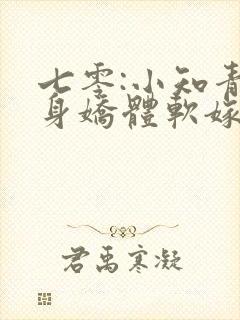 七零:小知青
身嬌體軟嫁
君禹寒凝